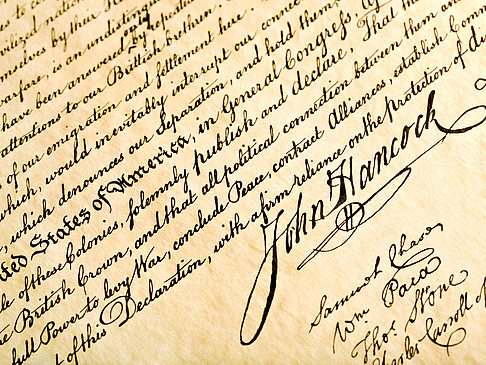 vilized nation
mselves by their
warfare, is an undistinguished
have been answered only by repeated
attentions to our Brittish brethren.
s of our emigration and settlement here.
which, would inevitably interrupt our connec
, which denounces our Separation, and hold them
nited States of America, in General Congress,
le of these Colonies, solemnly publish and declare, That th
e British Crown, and that all political connection between them an
full Power to levy War, conclude Peace, contract Alliances, establish Comm
t of this Declaration, with a firm reliance on the protection of di
John Hancock
Samuel Chase
Wm Paca
Thos Stone
Charles Carroll of